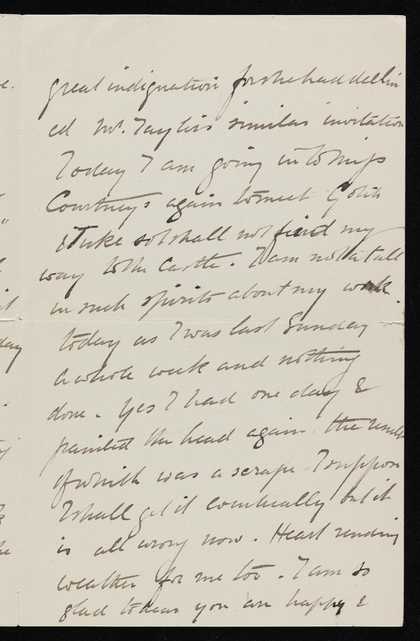 e.
great indignation for she had declin
ed Mr. Taylor's similar invitation
Today I am going in to Miss
Courtneys again to meet
& Tuke so I shall not find my
way to the Castle. I am not at all
in such spirits about my work
today as I was last Sunday
a whole week and nothing
done. Yes I had one day &
painted the head again the result
of which was a scrape. I suppose
I shall get it eventually but it
is all wrong now. Heart rending
weather for me too. I am so
glad to hear you are happy &